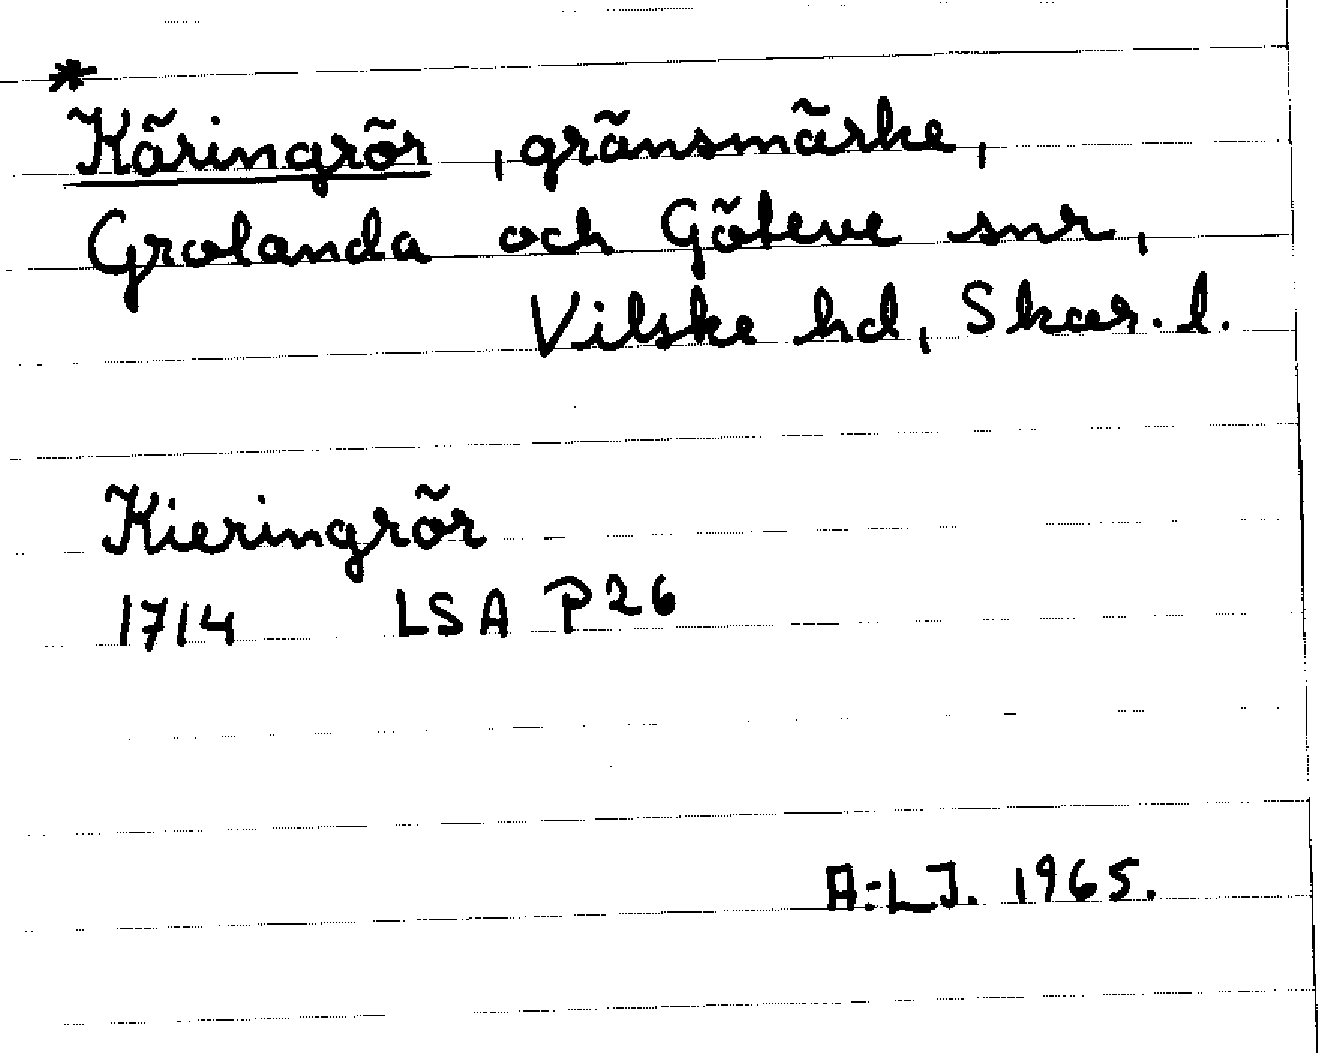 *
Käringrör, gränsmärke,
Grolanda och Göteve snr,
Vilske hd, Skar. l.
Kieringrör
1714 LSA P26
A:LJ. 1965.